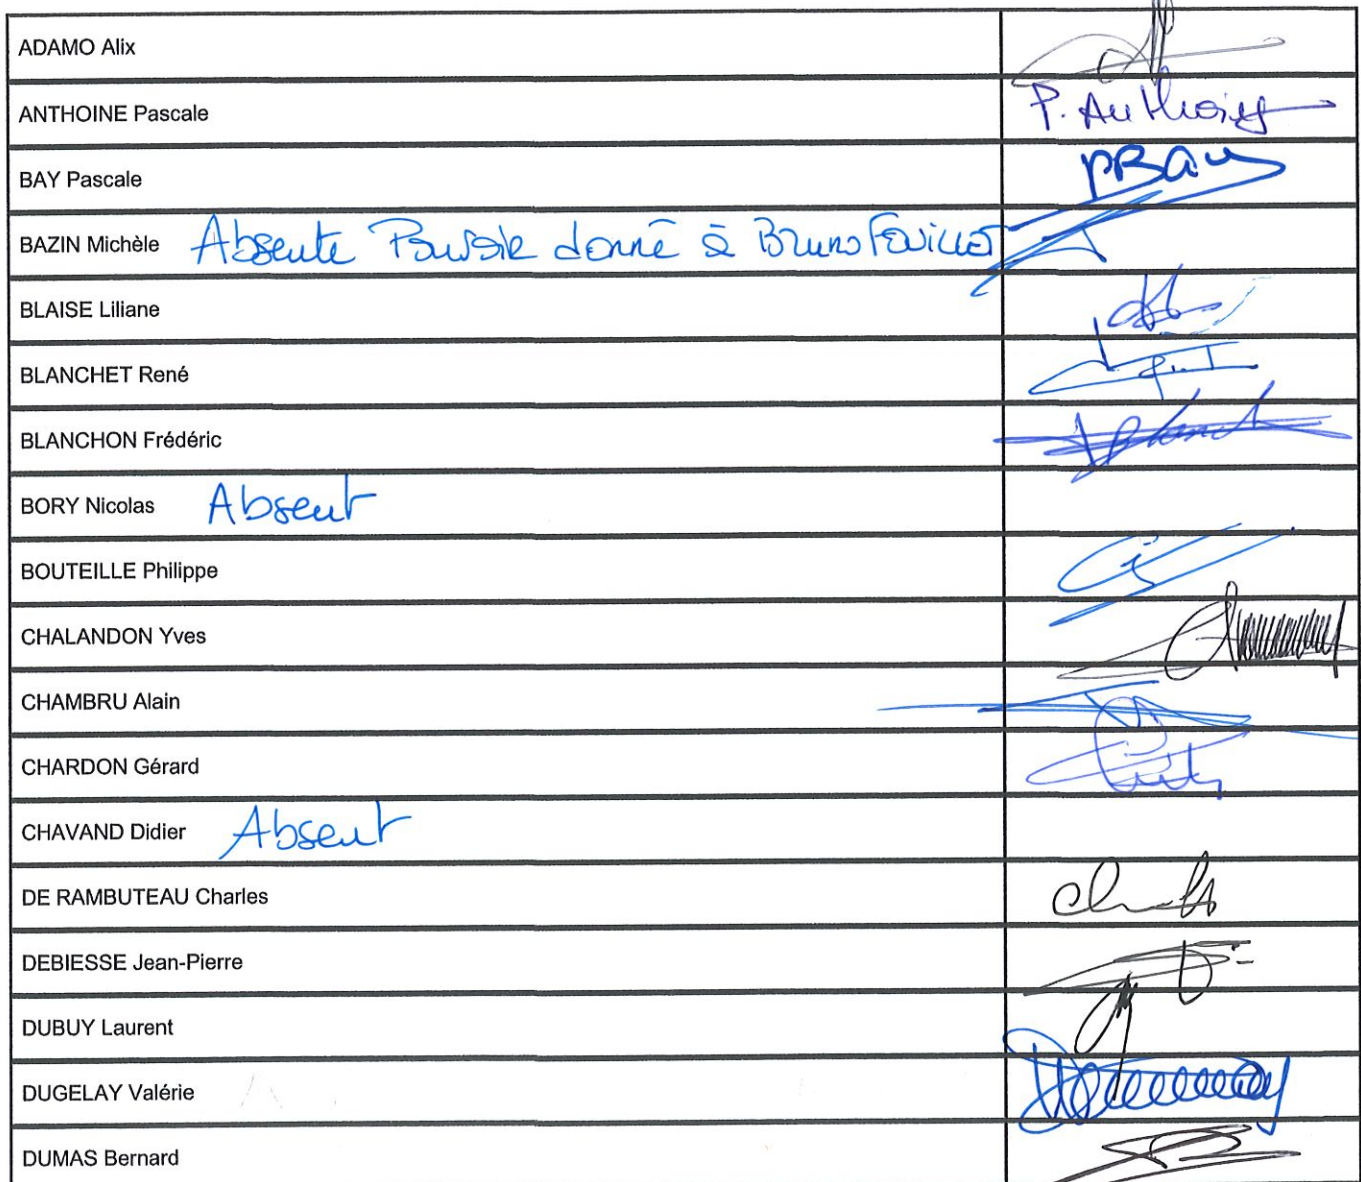 ADAMO Alix
ANTHOINE Pascale P. Anthoine
BAY Pascale PBay
BAZIN Michèle Absente Pouvoir donné à Bruno
BLAISE Liliane
BLANCHET René
BLANCHON Frédéric
BORY Nicolas Absent
BOUTEILLE Philippe
CHALANDON Yves
CHAMBRU Alain
CHARDON Gérard
CHAVAND Didier Absent
DE RAMBUTEAU Charles
DEBIESSE Jean-Pierre
DUBUY Laurent
DUGELAY Valérie
DUMAS Bernard